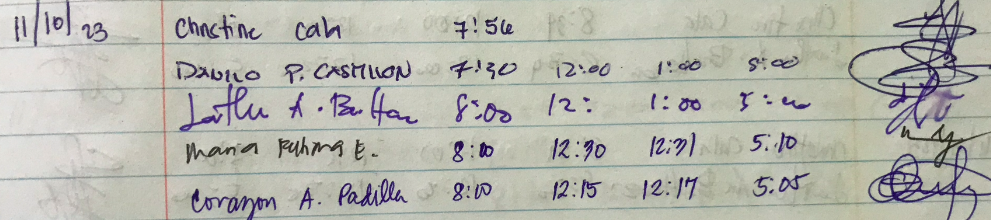 11/10/23 Christine Cah 7:54
DANILO P. CASTILLON 7:30 12:00 1:00 5:00
A. 8:00 12: 1:00 5:00
Maria E. 8:00 12:30 12:31 5:10
Corazon A. Padilla 8:00 12:15 12:17 5:05